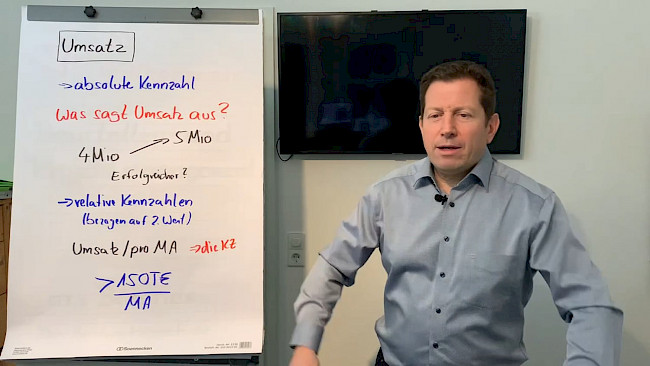 Umsatz
→ absolute Kennzahl
Was sagt Umsatz aus?
4Mio → 5Mio
Erfolgreicher?
→ relative Kennzahlen
(bezogen auf 2. Wert)
Umsatz/pro MA → die KZ
> 150TE
MA